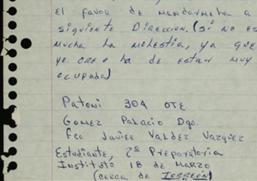 el favor de mandarmela a
siguiente Direccion. (si no es
mucha la molestia, ya que
yo creo ha de estar muy
ocupado)
Patoni 304 OTE
Gomez Palacio Dgo.
Fco Javier Valdez Vazquez
Estudiante, 2º Preparatoria
Instituto 18 de Marzo
(cerca de Torreón)